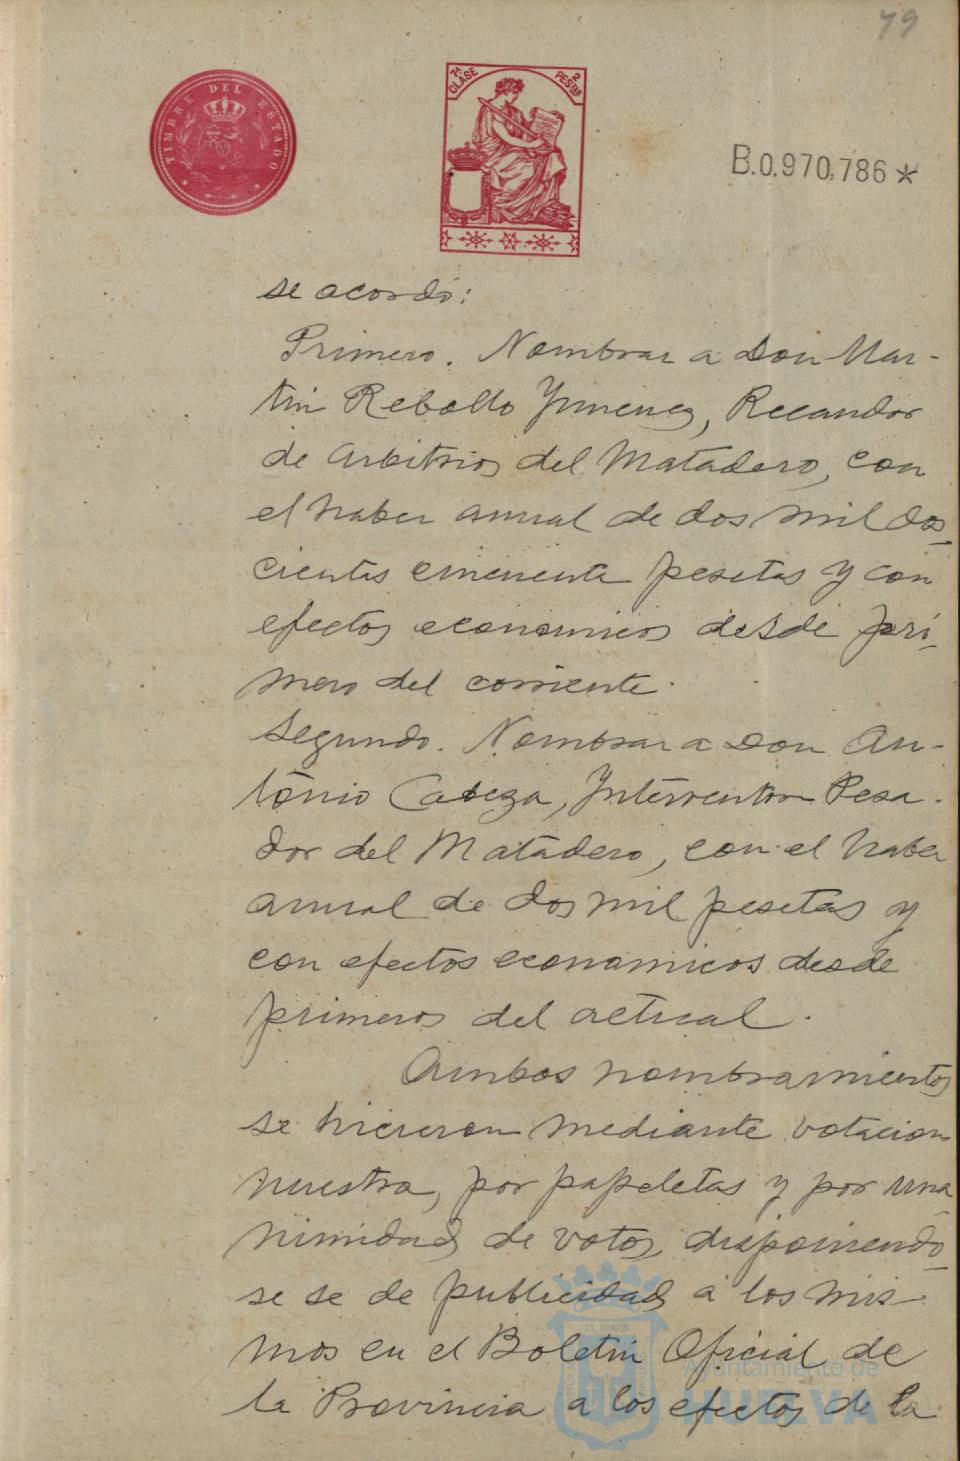 79
TIMBRE DEL ESTADO
7ª CLASE
2 PESTAS
B.0.970.786*
se acordó:
Primero. Nombrar a Don Mar-
tin Rebollo Jimenez, Recaudor
de Arbitrios del Matadero, con
el haber anual de dos mil dos-
cientas cincuenta pesetas y con
efectos economicos desde pri-
mero del corriente.
Segundo. Nombrar a Don An-
tonio Cabeza, Interventor Pesa-
dor del Matadero, con el haber
anual de dos mil pesetas y
con efectos economicos desde
primeros del actual.
Ambos nombramientos
se hicieron mediante votacion
nuestra, por papeletas y por una-
nimidad de votos, disponiendo-
se se de publicidad a los mis-
mos en el Boletin Oficial de
la Provincia a los efectos de la
Ayuntamiento de
HUELVA